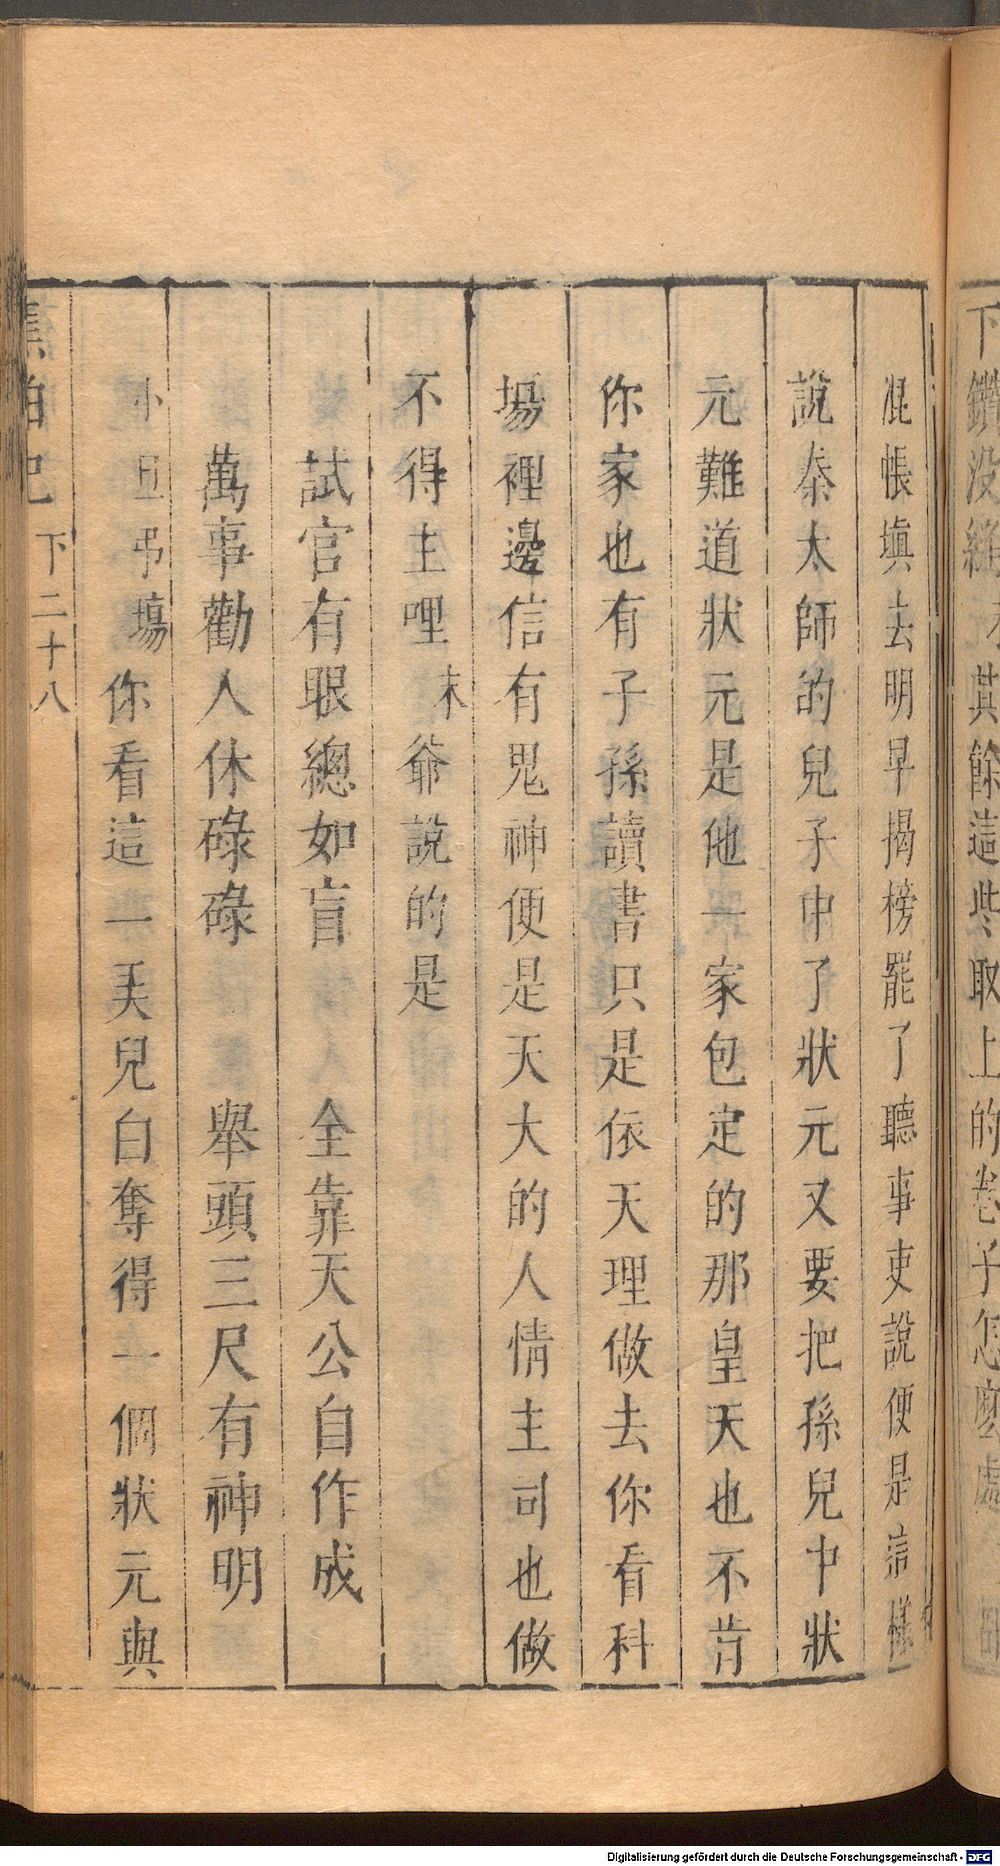 下鑽没縫  其餘這些取上的卷子怎麼處
混帳塡去明早揭榜罷了聽事吏說便是這樣
說秦太師的兒子中了狀元又要把孫兒中狀
元難道狀元是他一家包定的那皇天也不肯
你家也有子孫讀書只是依天理做去你看科
塲裡邊信有鬼神便是天大的人情主司也做
不得主哩末爺說的是
試官有眼總如盲 全靠天公自作成
萬事勸人休碌碌 舉頭三尺有神明
小丑弔塲你看這一美兒白奪得一個狀元與
蕉帕記 下二十八
Digitalisierung gefördert durch die Deutsche Forschungsgemeinschaft - DFG